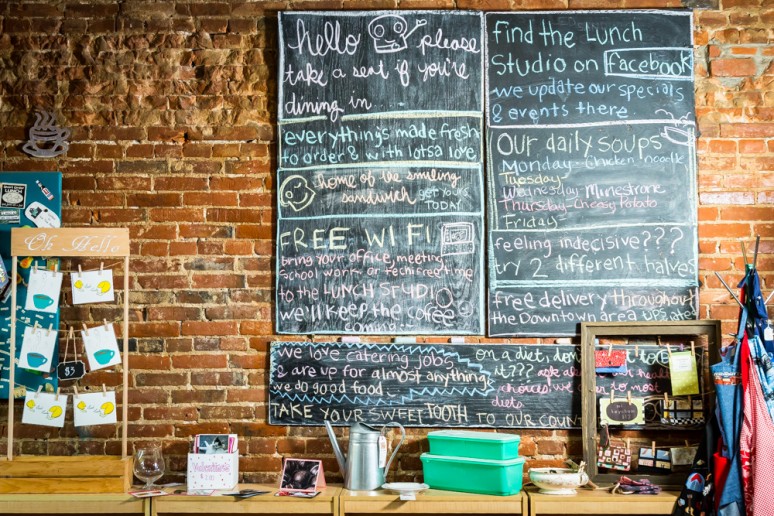 hello please
take a seat if you're
dining in
everythings made fresh
to order & with lotsa love
home of the smiling
sandwich get yours
TODAY
FREE WIFI
bring your office, meeting,
school work, or tech free time
to the LUNCH STUDIO
we'll keep the coffee
coming...
find the Lunch
Studio on facebook
we update our specials
& events there
our daily soups
Monday - chicken noodle
Tuesday -
Wednesday Minestrone
Thursday - cheesy Potato
Friday -
feeling indecisive???
try 2 different halves
free delivery throughout
the Downtown area
we love catering jobs
& are up for almost anything
we do good food
on a diet, don't
it???
choices, we
diets
TAKE YOUR SWEET TOOTH TO OUR COUN
Oh Hello
LUNCH
$3
Valentine's